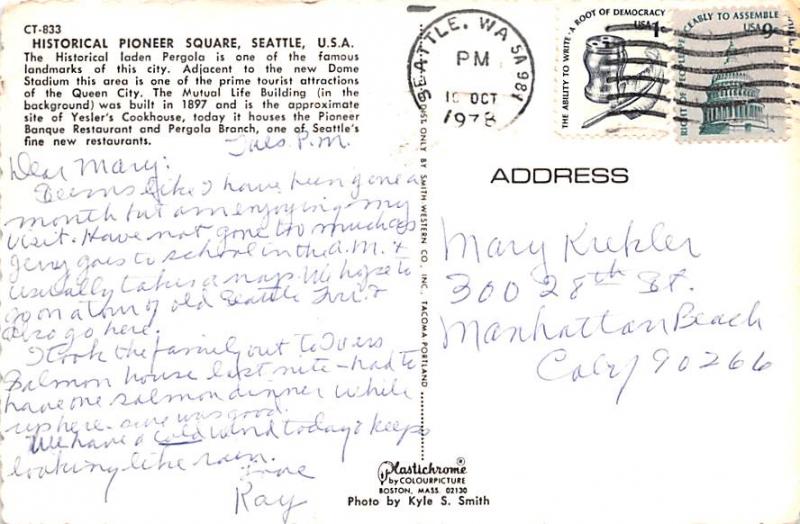 CT-833
HISTORICAL PIONEER SQUARE, SEATTLE, U.S.A.
The Historical laden Pergola is one of the famous
landmarks of this city. Adjacent to the new Dome
Stadium this area is one of the prime tourist attractions
of the Queen City. The Mutual Life Building (in the
background) was built in 1897 and is the approximate
site of Yesler's Cookhouse, today it houses the Pioneer
Banque Restaurant and Pergola Branch, one of Seattle's
fine new restaurants.
Tues P.M.
Dear Mary:
Seems like I have been gone a
month but am enjoying my
visit. Have not gone too much as
goes to school in the A.M. &
usually takes a nap. We hope to
go on a tour of old Seattle Fri. &
also go here.
I took the family out to Ivers
Salmon house last nite - had to
have one salmon dinner while
up here - sure was good.
We have a cold wind today & keeps
looking like rain.
Love
Ray
SEATTLE, WA 981
PM
OCT
1978
THE ABILITY TO WRITE · A ROOT OF DEMOCRACY
USA 1c
RIGHT OF PEOPLE PEACEABLY TO ASSEMBLE
USA 9c
POST ONLY BY SMITH WESTERN CO., INC., TACOMA PORTLAND
ADDRESS
Mary
300 28th St.
Manhattan Beach
Caly 90266
Plastichrome
by COLOURPICTURE
BOSTON, MASS. 02130
Photo by Kyle S. Smith